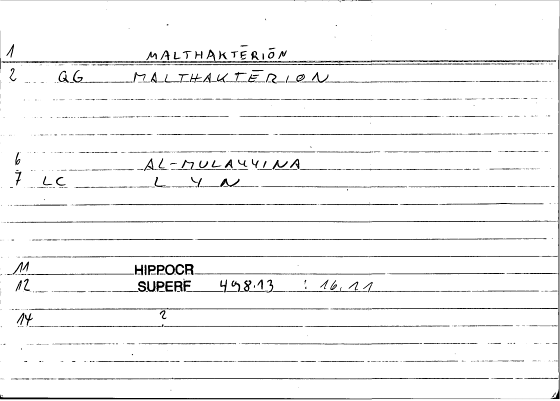 1 MALTHAKTĒRIŌN
2 QG MALTHAKTĒRION
6 AL-MULAYYINA
7 LC L Y N
11 HIPPOCR
12 SUPERF 498.13 : 16.11
14 ?